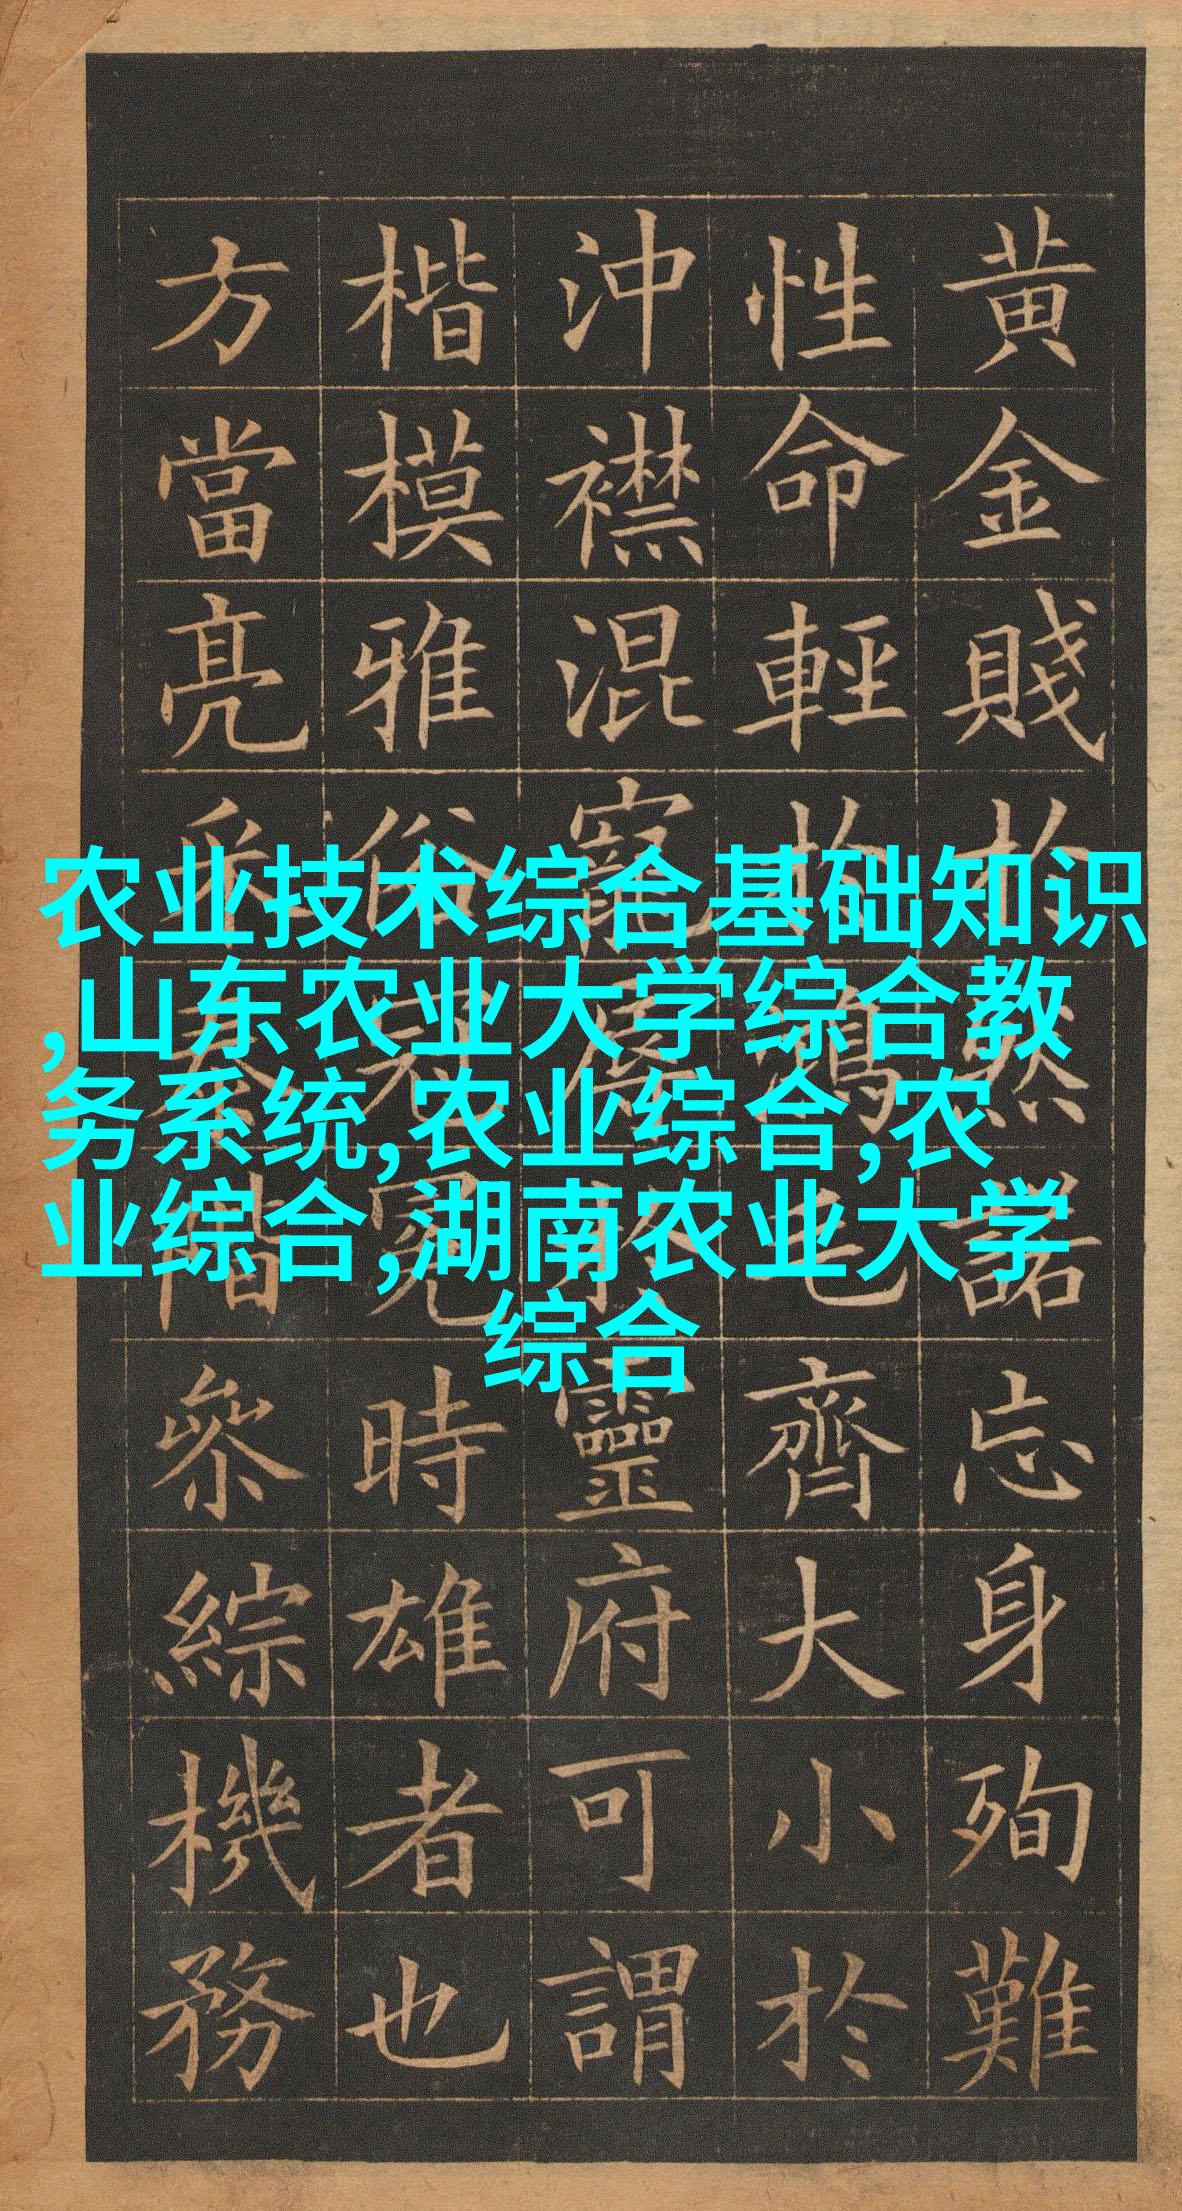 农业技术综合基础知识
,山东农业大学综合教
务系统,农业综合,农
业综合,湖南农业大学
综合
黄金賤於然諾忘身殉難
性命輕於鴻毛齊大小於
沖襟混寵辱於靈府可謂
楷模雅俗冠冕時雄者也
方當亮采泰階參綜機務